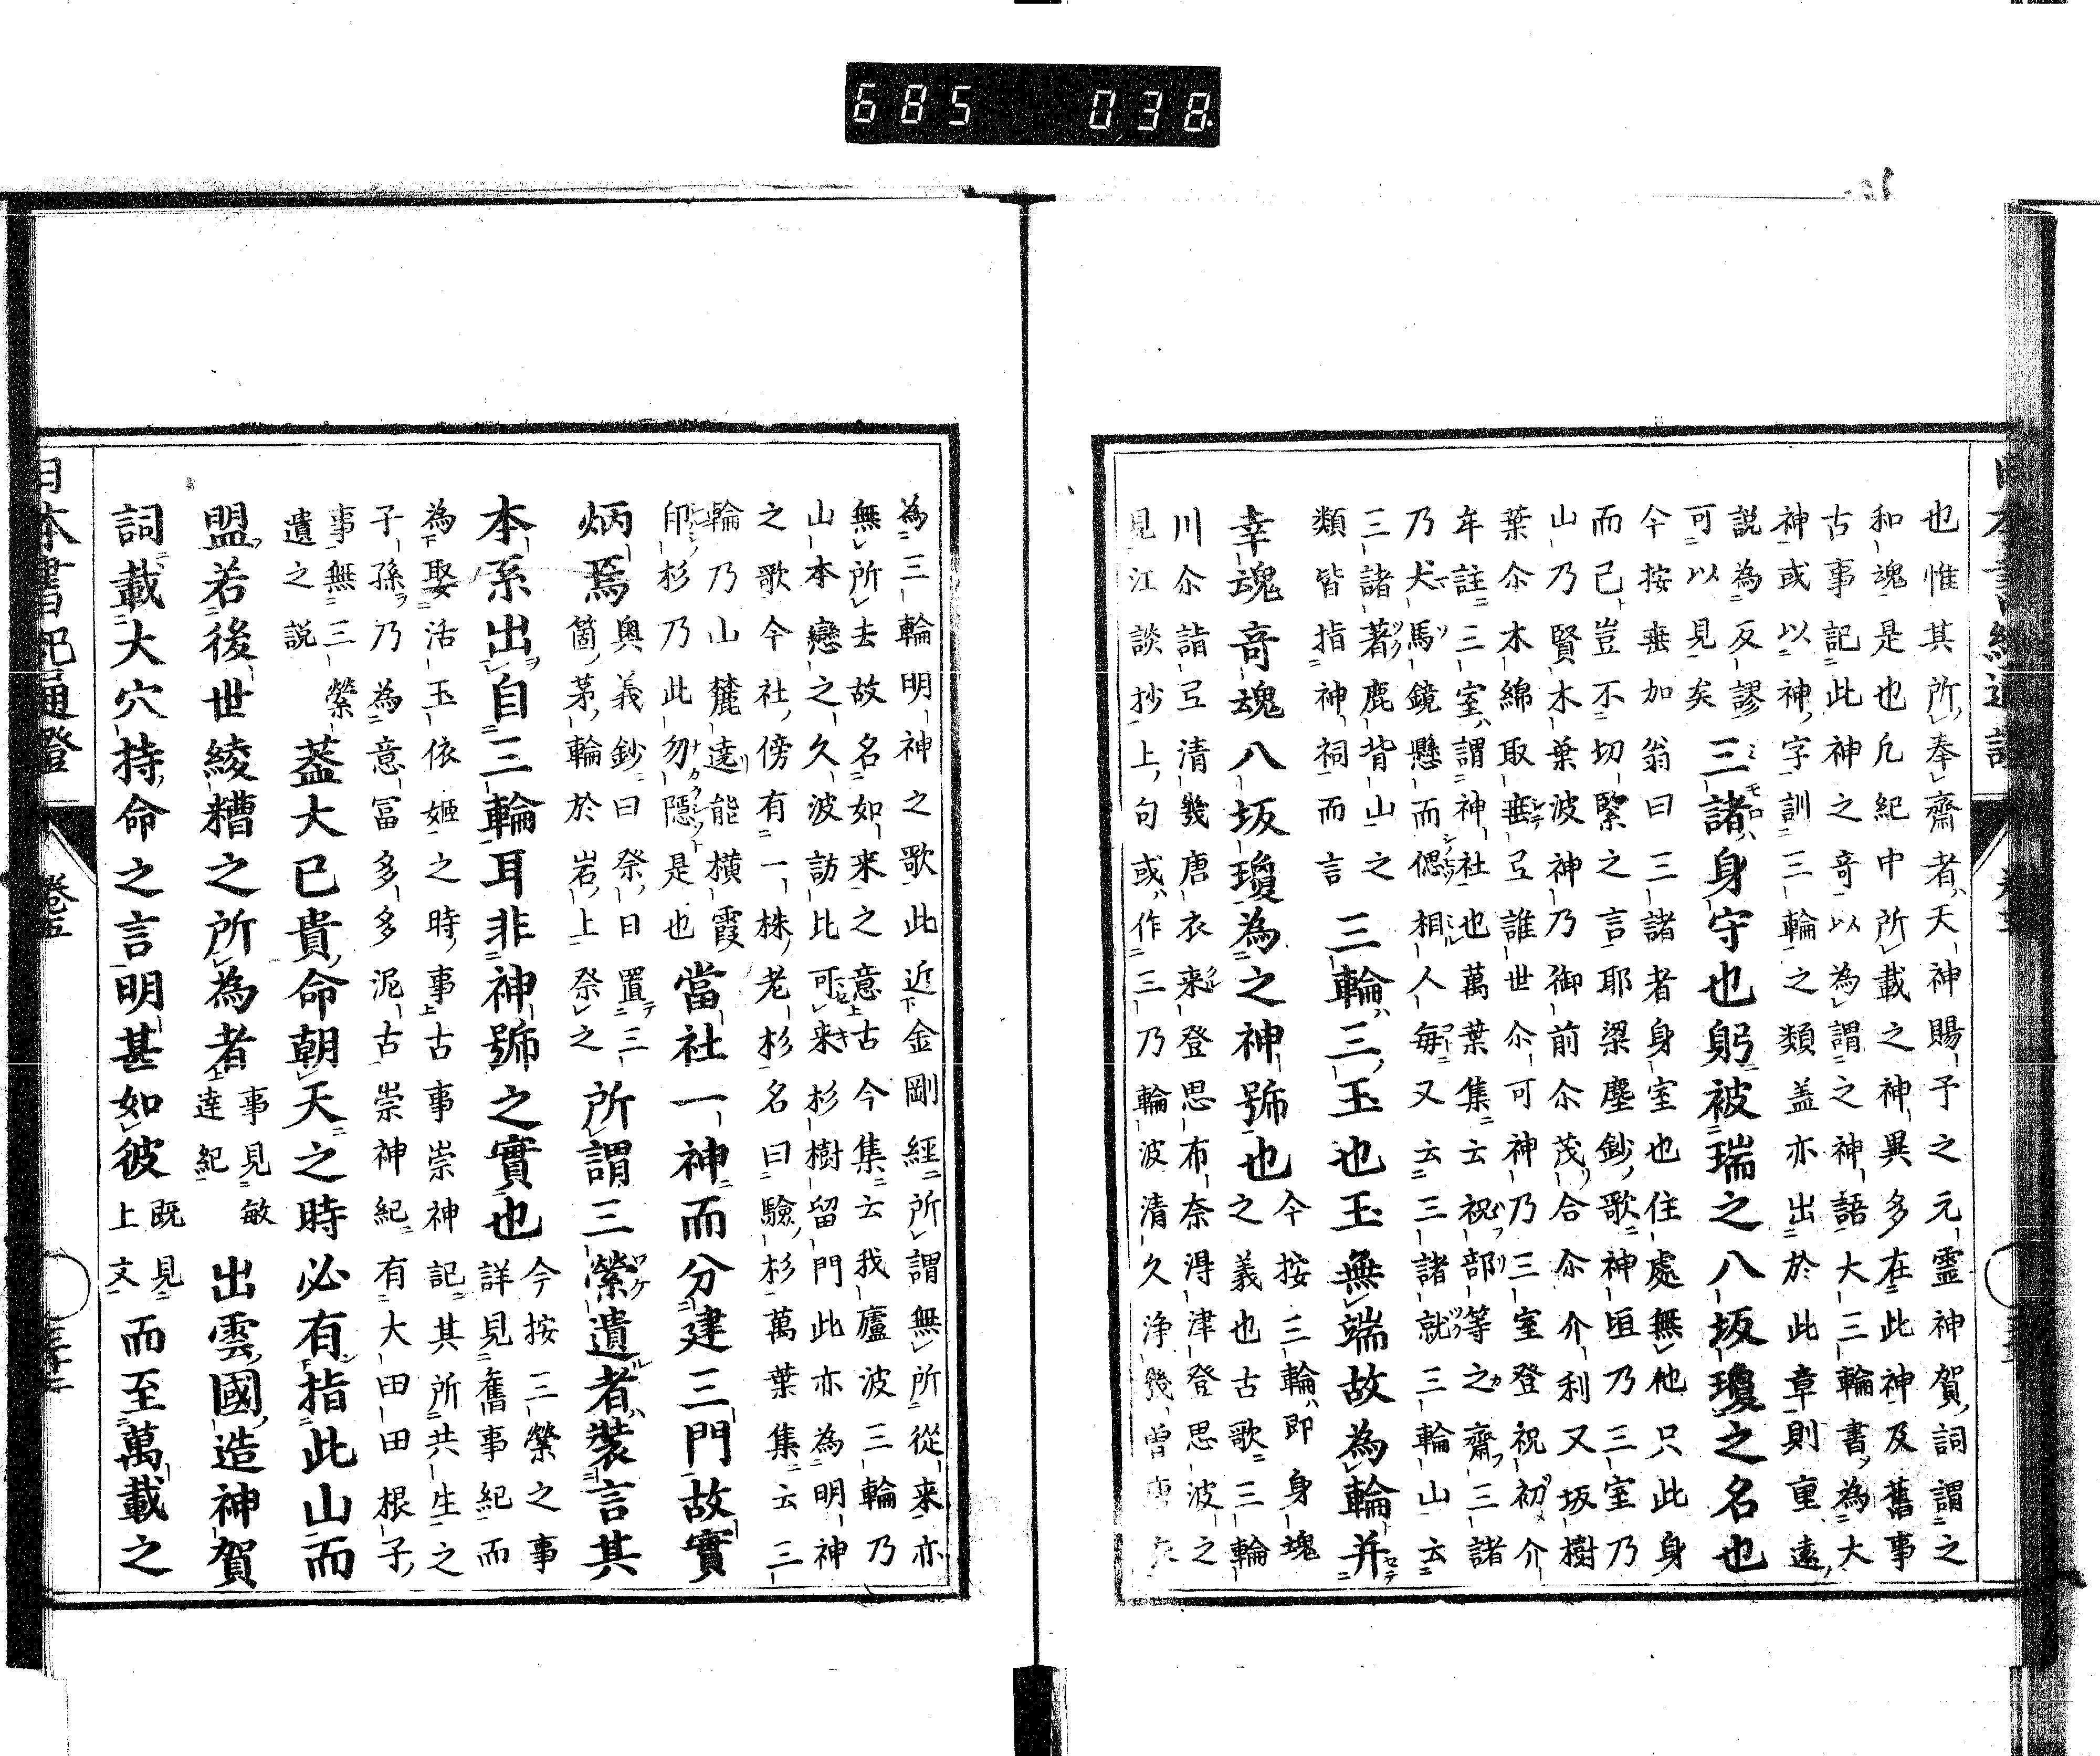 685 038
也惟其所奉齋者天神賜予之元霊神賀詞謂之
和魂是也凡紀中所載之神異多在此神及舊事
古事記此神之奇以為謂之神語大三輪書為大
神或以神字訓三輪之類盖亦出於此章則重遠
説為反謬
可以見矣
三諸身守也躬被瑞之八坂瓊之名也
今按垂加翁曰三諸者身室也住處無他只此身
而已豈不切緊之言耶梁塵鈔歌神垣乃三室乃
山乃賢木葉波神乃御前尒茂合尒介利又坂樹
葉尒木綿取垂弖誰世尒可神乃三室登祝初介
年註三室謂神社也萬葉集云祝部等之齋三諸
乃犬馬鏡懸而偲相人毎又云三諸就三輪山云
三諸著鹿背山之
類皆指神祠而言
三輪三玉也玉無端故為輪并
幸魂奇魂八坂瓊為之神號也
今按三輪即身魂
之義也古歌三輪
川尒詣弖清幾唐衣来登思布奈淂津登思波之
見江談抄上句或作三乃輪波清久浄幾
為三輪明神之歌此近金剛經所謂無所從来亦
無所去故名如来之意古今集云我廬波三輪乃
山本戀之久波訪比可来杉樹留門此亦為明神
之歌今社傍有一株老杉名曰驗杉萬葉集云三
輪乃山麓達能横霞
印杉乃此勿隠是也
當社一神而分建三門故實
炳焉
奥義鈔曰祭日置三
箇茅輪於岩上祭之
所謂三縈遺者裝言其
本系出自三輪耳非神號之實也
今按三縈之事
詳見舊事紀而
為娶活玉依姫之時事古事崇神記其所共生之
子孫乃為意冨多多泥古崇神紀有大田田根子
事無三縈
遺之説
葢大己貴命朝天之時必有指此山而
盟若後世綾糟之所為者
事見敏
達紀
出雲國造神賀
詞載大穴持命之言明甚如彼
既見
上文
而至萬載之
日本書紀通證
卷五